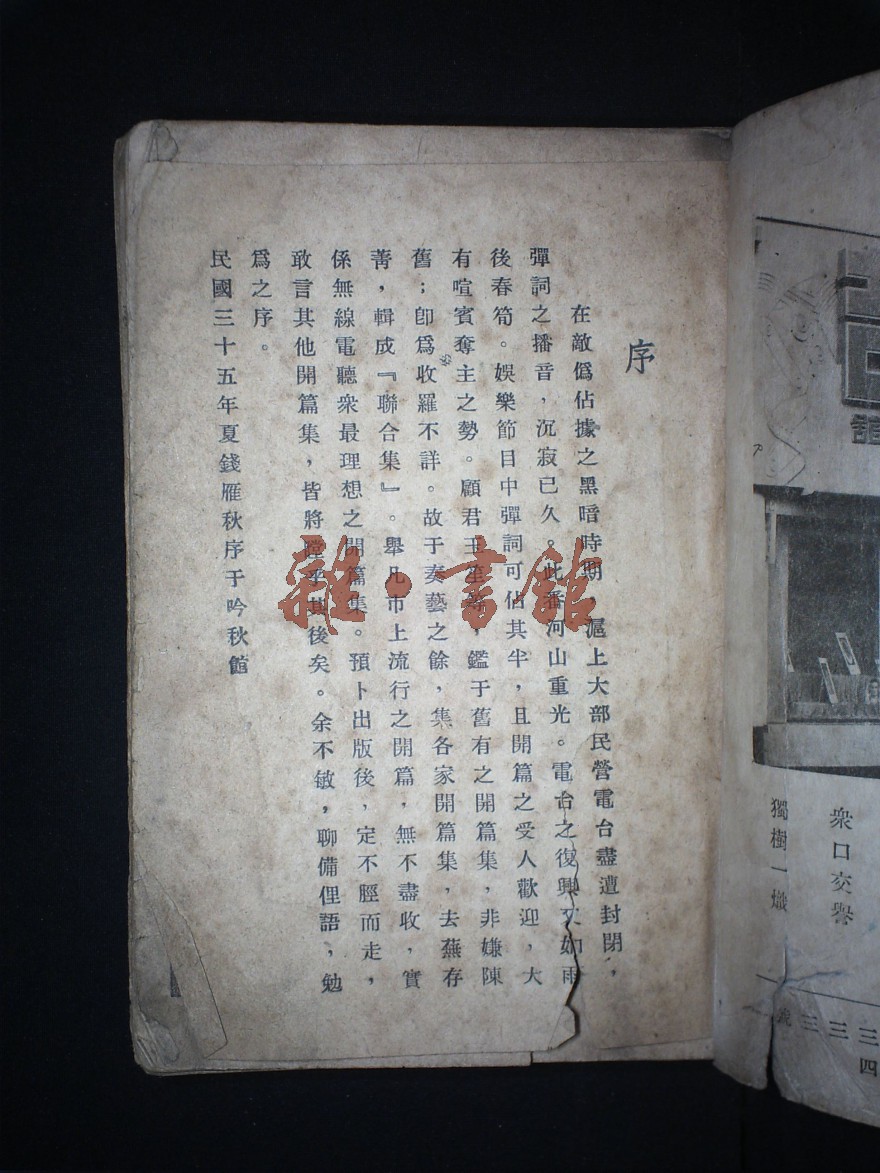 序
在敵僞佔據之黑暗時期，滬上大部民營電台盡遭封閉，
彈詞之播音，沉寂已久。此番河山重光。電台之復興又如雨
後春筍。娛樂節目中彈詞可佔其半，且開篇之受人歡迎，大
有喧賓奪主之勢。顧君玉笙等，鑑于舊有之開篇集，非嫌陳
舊；卽爲收羅不詳。故于奏藝之餘，集各家開篇集，去蕪存
菁，輯成『聯合集』。舉凡市上流行之開篇，無不盡收，實
係無線電聽衆最理想之開篇集。預卜出版後，定不脛而走，
敢言其他開篇集，皆將瞠乎其後矣。余不敏，聊備俚語，勉
爲之序。
民國三十五年夏錢雁秋序于吟秋館
雜·書館
衆口交譽
獨樹一幟
三四
三
三